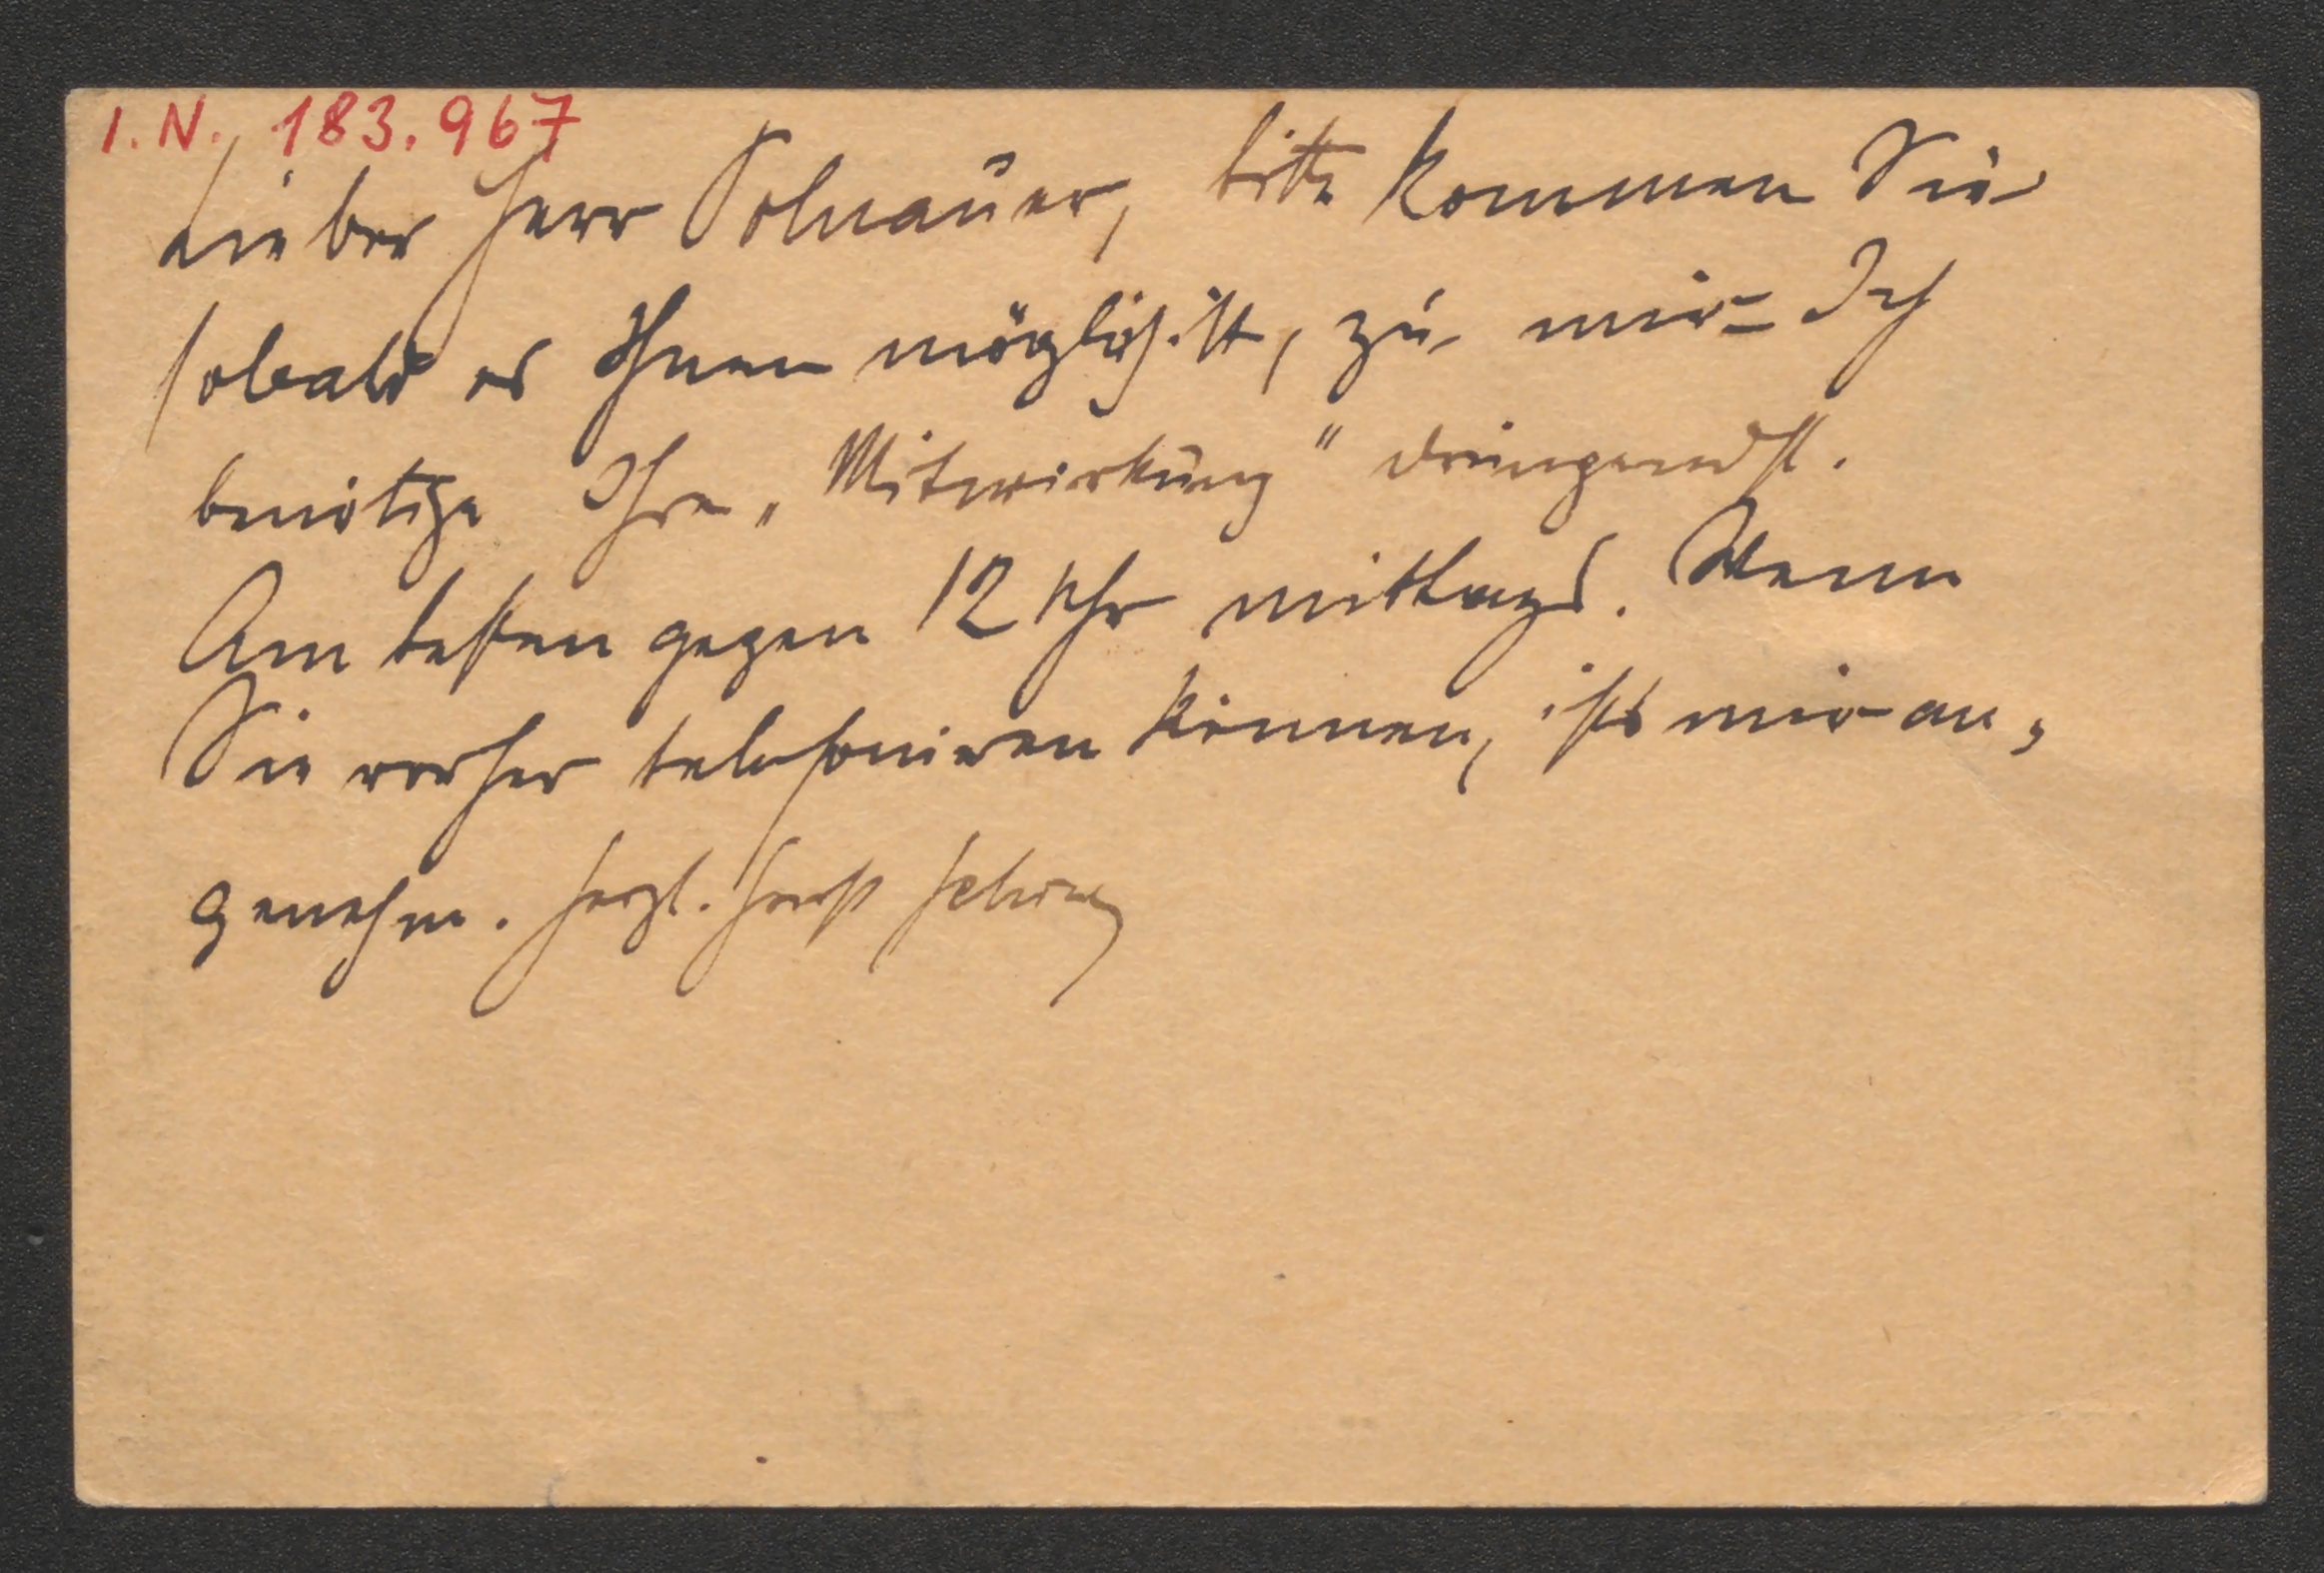 I.N. 183.967
Lieber Herr Polnauer, bitte kommen Sie
sobald es Ihnen möglich ist, zu mir – Ich
benötige Ihre „Mitwirkung" dringendst.
Am besten gegen 12 Uhr mittags. Wenn
Sie vorher telefoniren können, ists mir an-
genehm. Herzl.